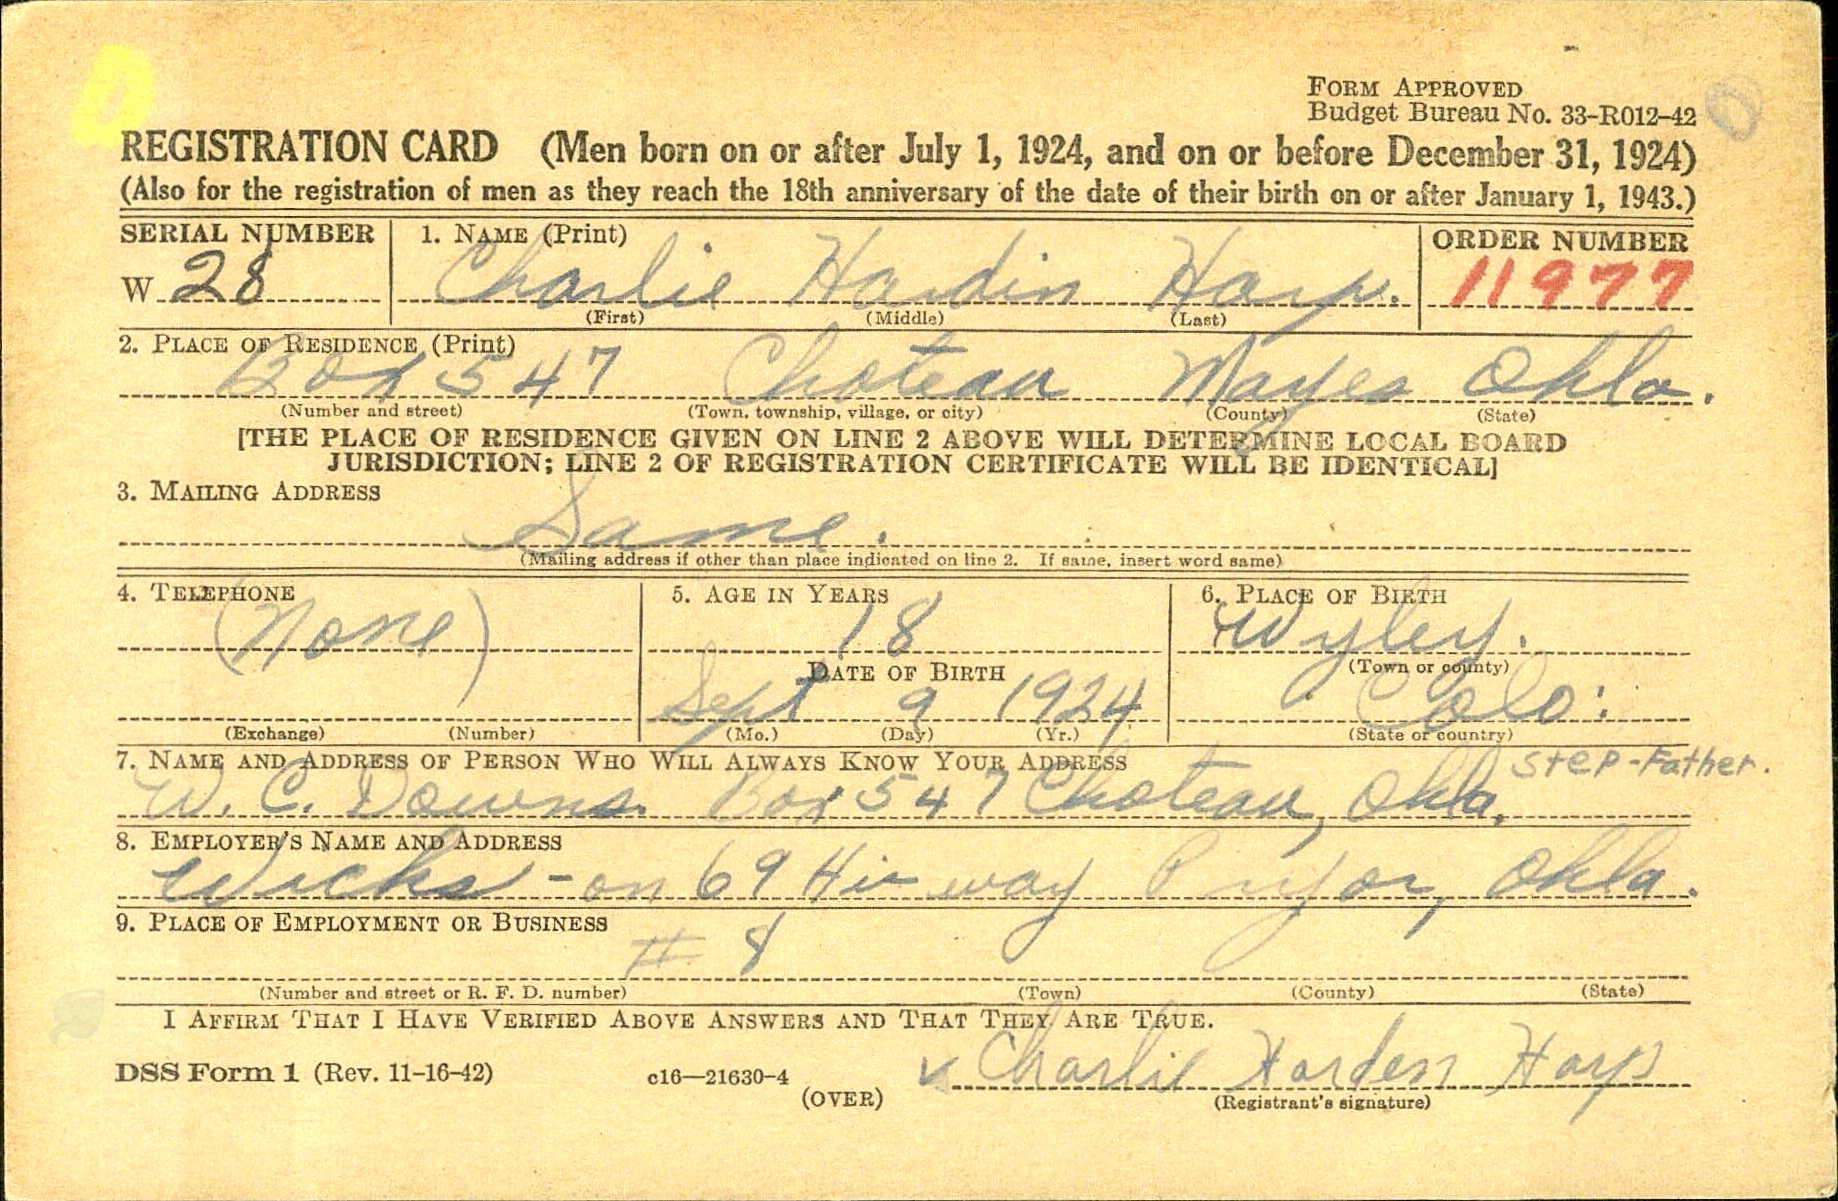 FORM APPROVED
Budget Bureau No. 33-R012-42
REGISTRATION CARD (Men born on or after July 1, 1924, and on or before December 31, 1924)
(Also for the registration of men as they reach the 18th anniversary of the date of their birth on or after January 1, 1943.)
SERIAL NUMBER 1. NAME (Print) ORDER NUMBER
W 28 Charlie Hardin Harp. 11977
(First) (Middle) (Last)
2. PLACE OF RESIDENCE (Print)
Box 547 Choteau Mayes Okla.
(Number and street) (Town, township, village, or city) (County) (State)
[THE PLACE OF RESIDENCE GIVEN ON LINE 2 ABOVE WILL DETERMINE LOCAL BOARD
JURISDICTION; LINE 2 OF REGISTRATION CERTIFICATE WILL BE IDENTICAL]
3. MAILING ADDRESS
Same.
(Mailing address if other than place indicated on line 2. If same, insert word same)
4. TELEPHONE 5. AGE IN YEARS 6. PLACE OF BIRTH
(None) 18 Wyley.
DATE OF BIRTH (Town or county)
Sept 9 1924 Colo:
(Exchange) (Number) (Mo.) (Day) (Yr.) (State or country)
7. NAME AND ADDRESS OF PERSON WHO WILL ALWAYS KNOW YOUR ADDRESS Step-Father.
W. C. Downs. Box 547 Choteau, Okla.
8. EMPLOYER'S NAME AND ADDRESS
Wicks - on 69 Hi way Pryor, Okla.
9. PLACE OF EMPLOYMENT OR BUSINESS
# 8
(Number and street or R. F. D. number) (Town) (County) (State)
I AFFIRM THAT I HAVE VERIFIED ABOVE ANSWERS AND THAT THEY ARE TRUE.
DSS Form 1 (Rev. 11-16-42) c16—21630-4 Charlie Harden Harp
(OVER) (Registrant's signature)